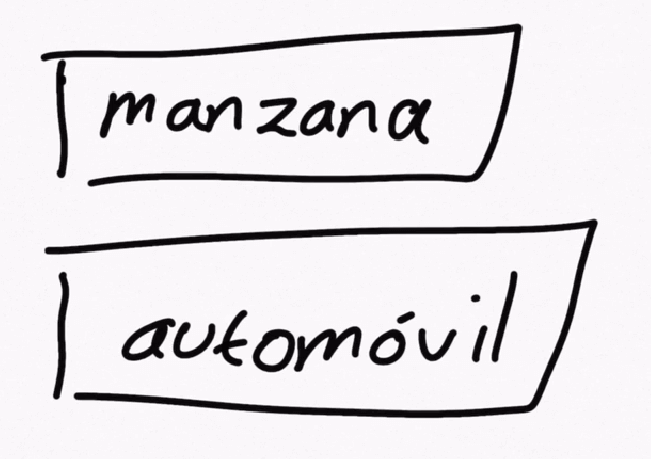 manzana
automóvil